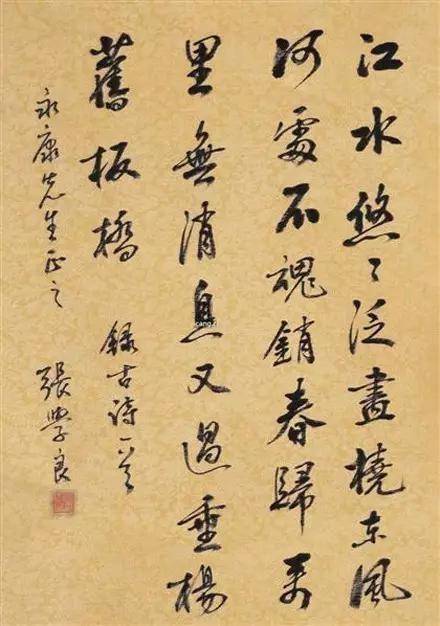 江水悠〻泛畫橈東風
何處不魂銷春歸萬
里無消息又過垂楊
舊板橋
錄古詩一首
永康先生正之
張學良